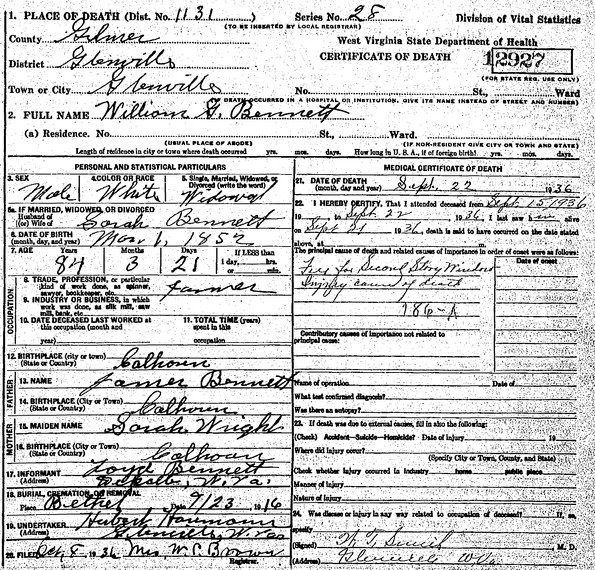 1. PLACE OF DEATH (Dist. No. 1131 ) Series No. 28 Division of Vital Statistics
(TO BE INSERTED BY LOCAL REGISTRAR)
County Gilmer West Virginia State Department of Health
District Glenville CERTIFICATE OF DEATH 12927
(FOR STATE REG. USE ONLY)
Town or City Glenville No. St., Ward
(IF DEATH OCCURRED IN A HOSPITAL OR INSTITUTION, GIVE ITS NAME INSTEAD OF STREET AND NUMBER)
2. FULL NAME William G. Bennett
(a) Residence. No. St., Ward.
(USUAL PLACE OF ABODE) (IF NON-RESIDENT GIVE CITY OR TOWN AND STATE)
Length of residence in city or town where death occurred yrs. mos. days. How long in U. S. A., if of foreign birth? yrs. mos. days.
PERSONAL AND STATISTICAL PARTICULARS
3. SEX 4. COLOR OR RACE 5. Single, Married, Widowed, or Divorced (write the word)
Male White Widowed
5a. IF MARRIED, WIDOWED, OR DIVORCED
Husband of
(or) Wife of Sarah Bennett
6. DATE OF BIRTH
(month, day, and year) 1, 1852
7. AGE Years Months Days If LESS than
1 day, hrs.
or min.
84 3 21
OCCUPATION
8. TRADE, PROFESSION, or particular
kind of work done, as spinner,
sawyer, bookkeeper, etc. Farmer
9. INDUSTRY OR BUSINESS, in which
work was done, as silk mill, saw
mill, bank, etc.
10. DATE DECEASED LAST WORKED at
this occupation (month and
year)
11. TOTAL TIME (years)
spent in this
occupation
12. BIRTHPLACE (city or town)
(State or Country) Calhoun
FATHER
13. NAME James Bennett
14. BIRTHPLACE (City or Town)
(State or Country) Calhoun
MOTHER
15. MAIDEN NAME Sarah Wright
16. BIRTHPLACE (City or Town)
(State or Country) Calhoun
17. INFORMANT Loyd Bennett
(Address) Dekalb, W. Va.
18. BURIAL, CREMATION, OR REMOVAL
Place Bethel Date 9/23 1916
19. UNDERTAKER Hubert
(Address) Glenville, W. Va.
20. FILED Oct 8 1936 Mrs. W. C. Brown
Registrar.
MEDICAL CERTIFICATE OF DEATH
21. DATE OF DEATH
(month, day and year) Sept. 22 1936
22. I HEREBY CERTIFY, That I attended deceased from Sept 15 1936
to Sept 22 1936, I last saw him alive
on Sept 21 1936, death is said to have occurred on the date stated
above, at m.
The principal cause of death and related causes of importance in order of onset were as follows:
Date of onset
for Second Story Window
Injury cause of death
186-A
Contributory causes of importance not related to
principal cause:
Name of operation Date of
What test confirmed diagnosis?
Was there an autopsy?
23. If death was due to external causes, fill in also the following:
(Check) Accident—Suicide—Homicide? Date of injury 19
Where did injury occur?
(Specify City or Town, County, and State)
Check whether injury occurred in industry home public place
Manner of injury
Nature of injury
24. Was disease or injury in any way related to occupation of deceased? If, so,
specify
(Signed) Smith M. D.
(Address) W Va